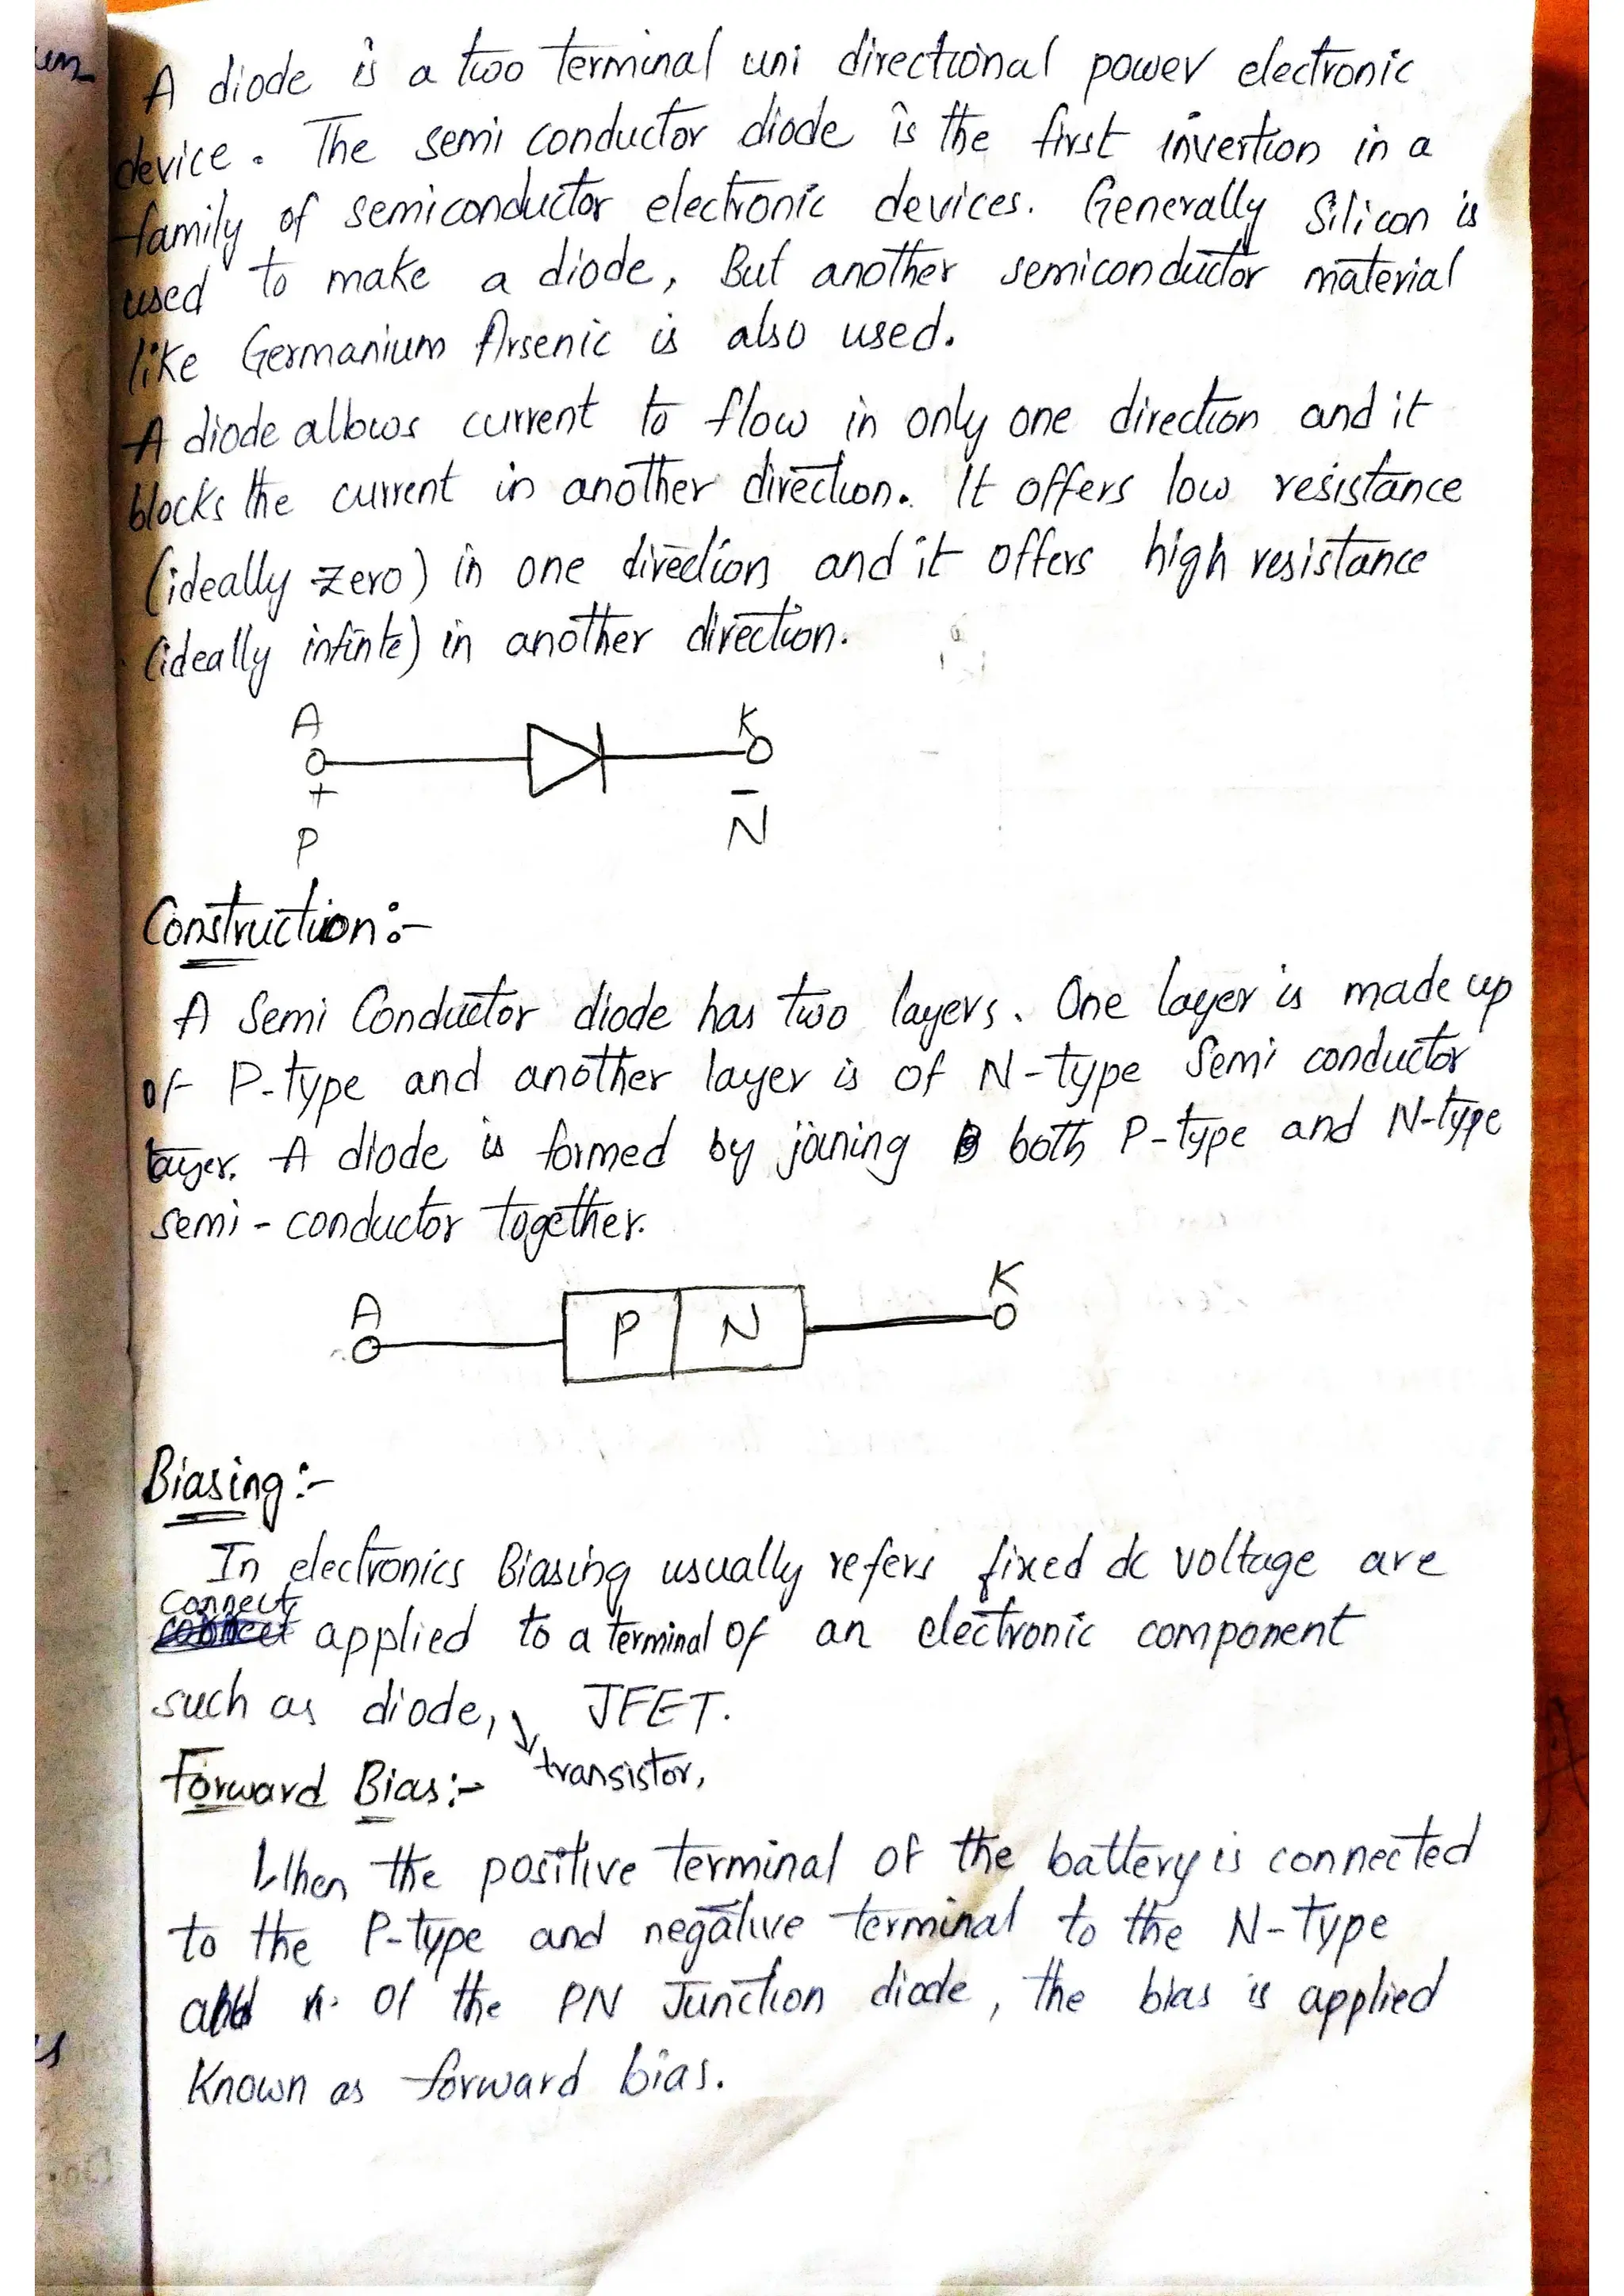 A diode is a two terminal uni directional power electronic
device. The semi conductor diode is the first invertion in a
family of semiconductor electronic devices. Generally Silicon is
used to make a diode, But another semiconductor material
like Germanium Arsenic is also used.
A diode allows current to flow in only one direction and it
blocks the current in another direction. It offers low resistance
(ideally zero) in one direction and it offers high resistance
(ideally infinte) in another direction.
A K
+ -
P N
Construction:-
A Semi Conductor diode has two layers. One layer is made up
of P-type and another layer is of N-type Semi conductor
layer. A diode is formed by joining both P-type and N-type
semi-conductor together.
A P N K
Biasing:-
In electronics Biasing usually refers fixed dc voltage are
connect applied to a terminal of an electronic component
such as diode, transistor, JFET.
Forward Bias:-
When the positive terminal of the battery is connected
to the P-type and negative terminal to the N-type
of the PN Junction diode, the bias is applied
Known as forward bias.